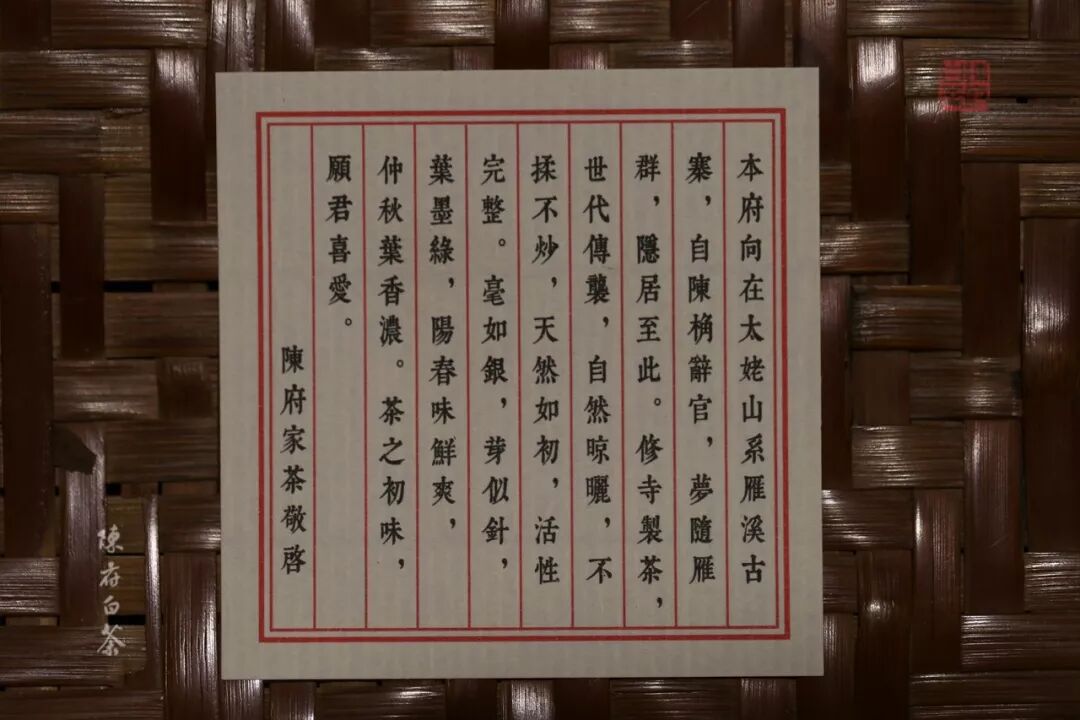 本府向在太姥山系雁溪古
寨，自陳桷辭官，夢隨雁
群，隱居至此。修寺製茶，
世代傳襲，自然晾曬，不
揉不炒，天然如初，活性
完整。毫如銀，芽似針，
葉墨綠，陽春味鮮爽，
仲秋葉香濃。茶之初味，
願君喜愛。
陳府家茶敬啓
陳府白茶